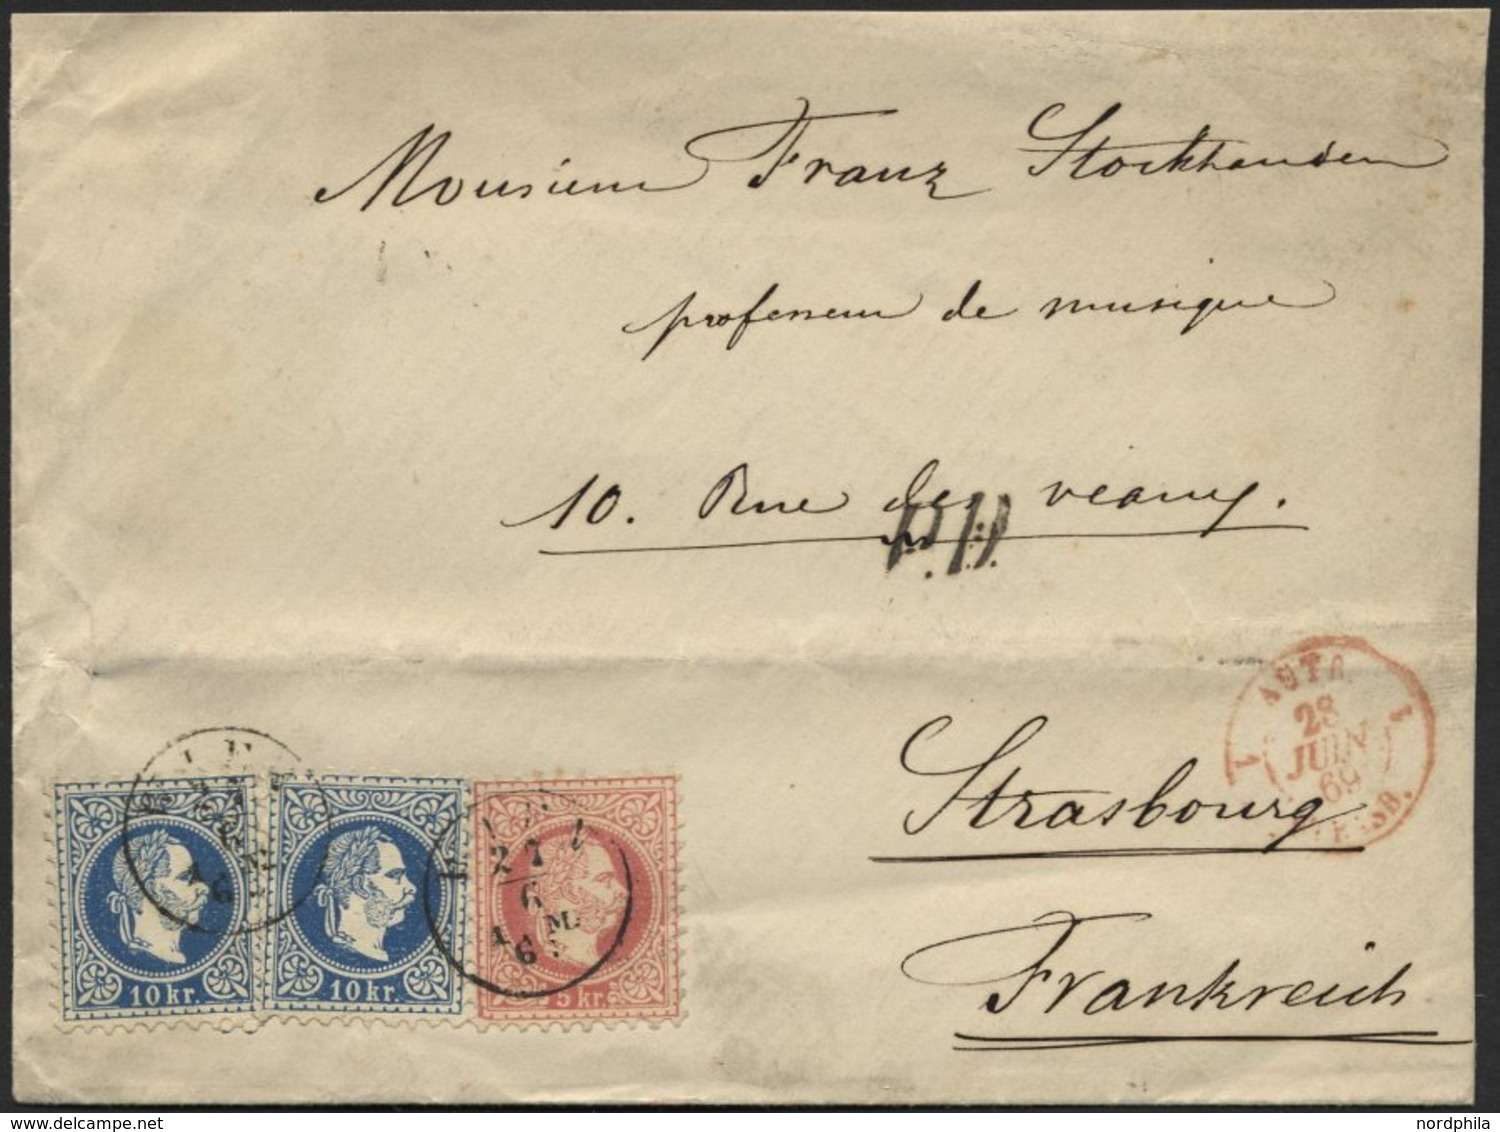 Monsieur Franz Stockhausen
professeur de musique
10. Rue des veaux.
P.D.
AUTR.
28
JUIN
69
STRASB.
Strasbourg
Frankreich
27
6
6 M.
10 kr. 10 kr. 5 kr.
nordphila